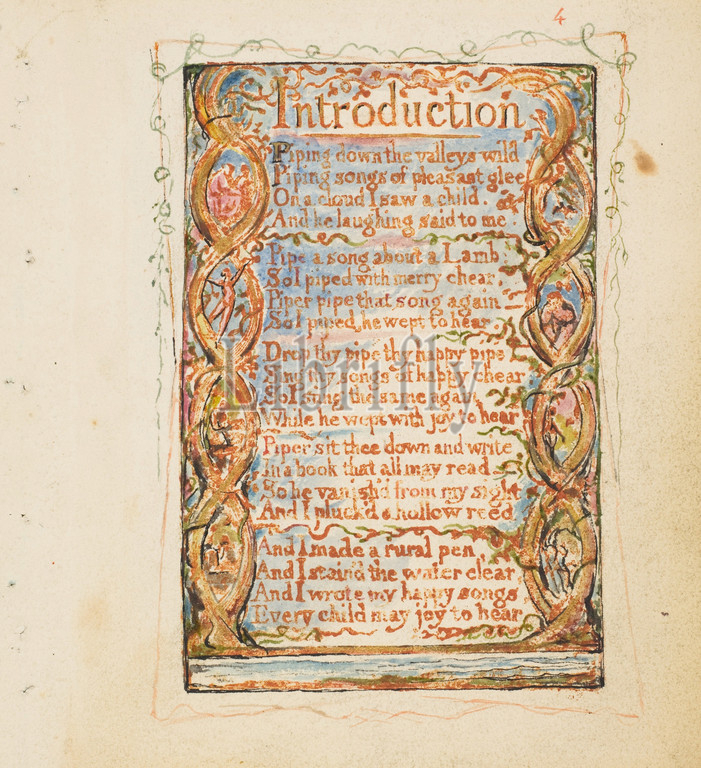 4
Introduction
Piping down the valleys wild
Piping songs of pleasant glee
On a cloud I saw a child.
And he laughing said to me.
Pipe a song about a Lamb;
So I piped with merry chear,
Piper pipe that song again—
So I piped, he wept to hear.
Drop thy pipe thy happy pipe
Sing thy songs of happy chear
So I sung the same again
While he wept with joy to hear
Piper sit thee down and write
In a book that all may read—
So he vanish'd from my sight
And I pluck'd a hollow reed.
And I made a rural pen,
And I stain'd the water clear,
And I wrote my happy songs
Every child may joy to hear
Librifly